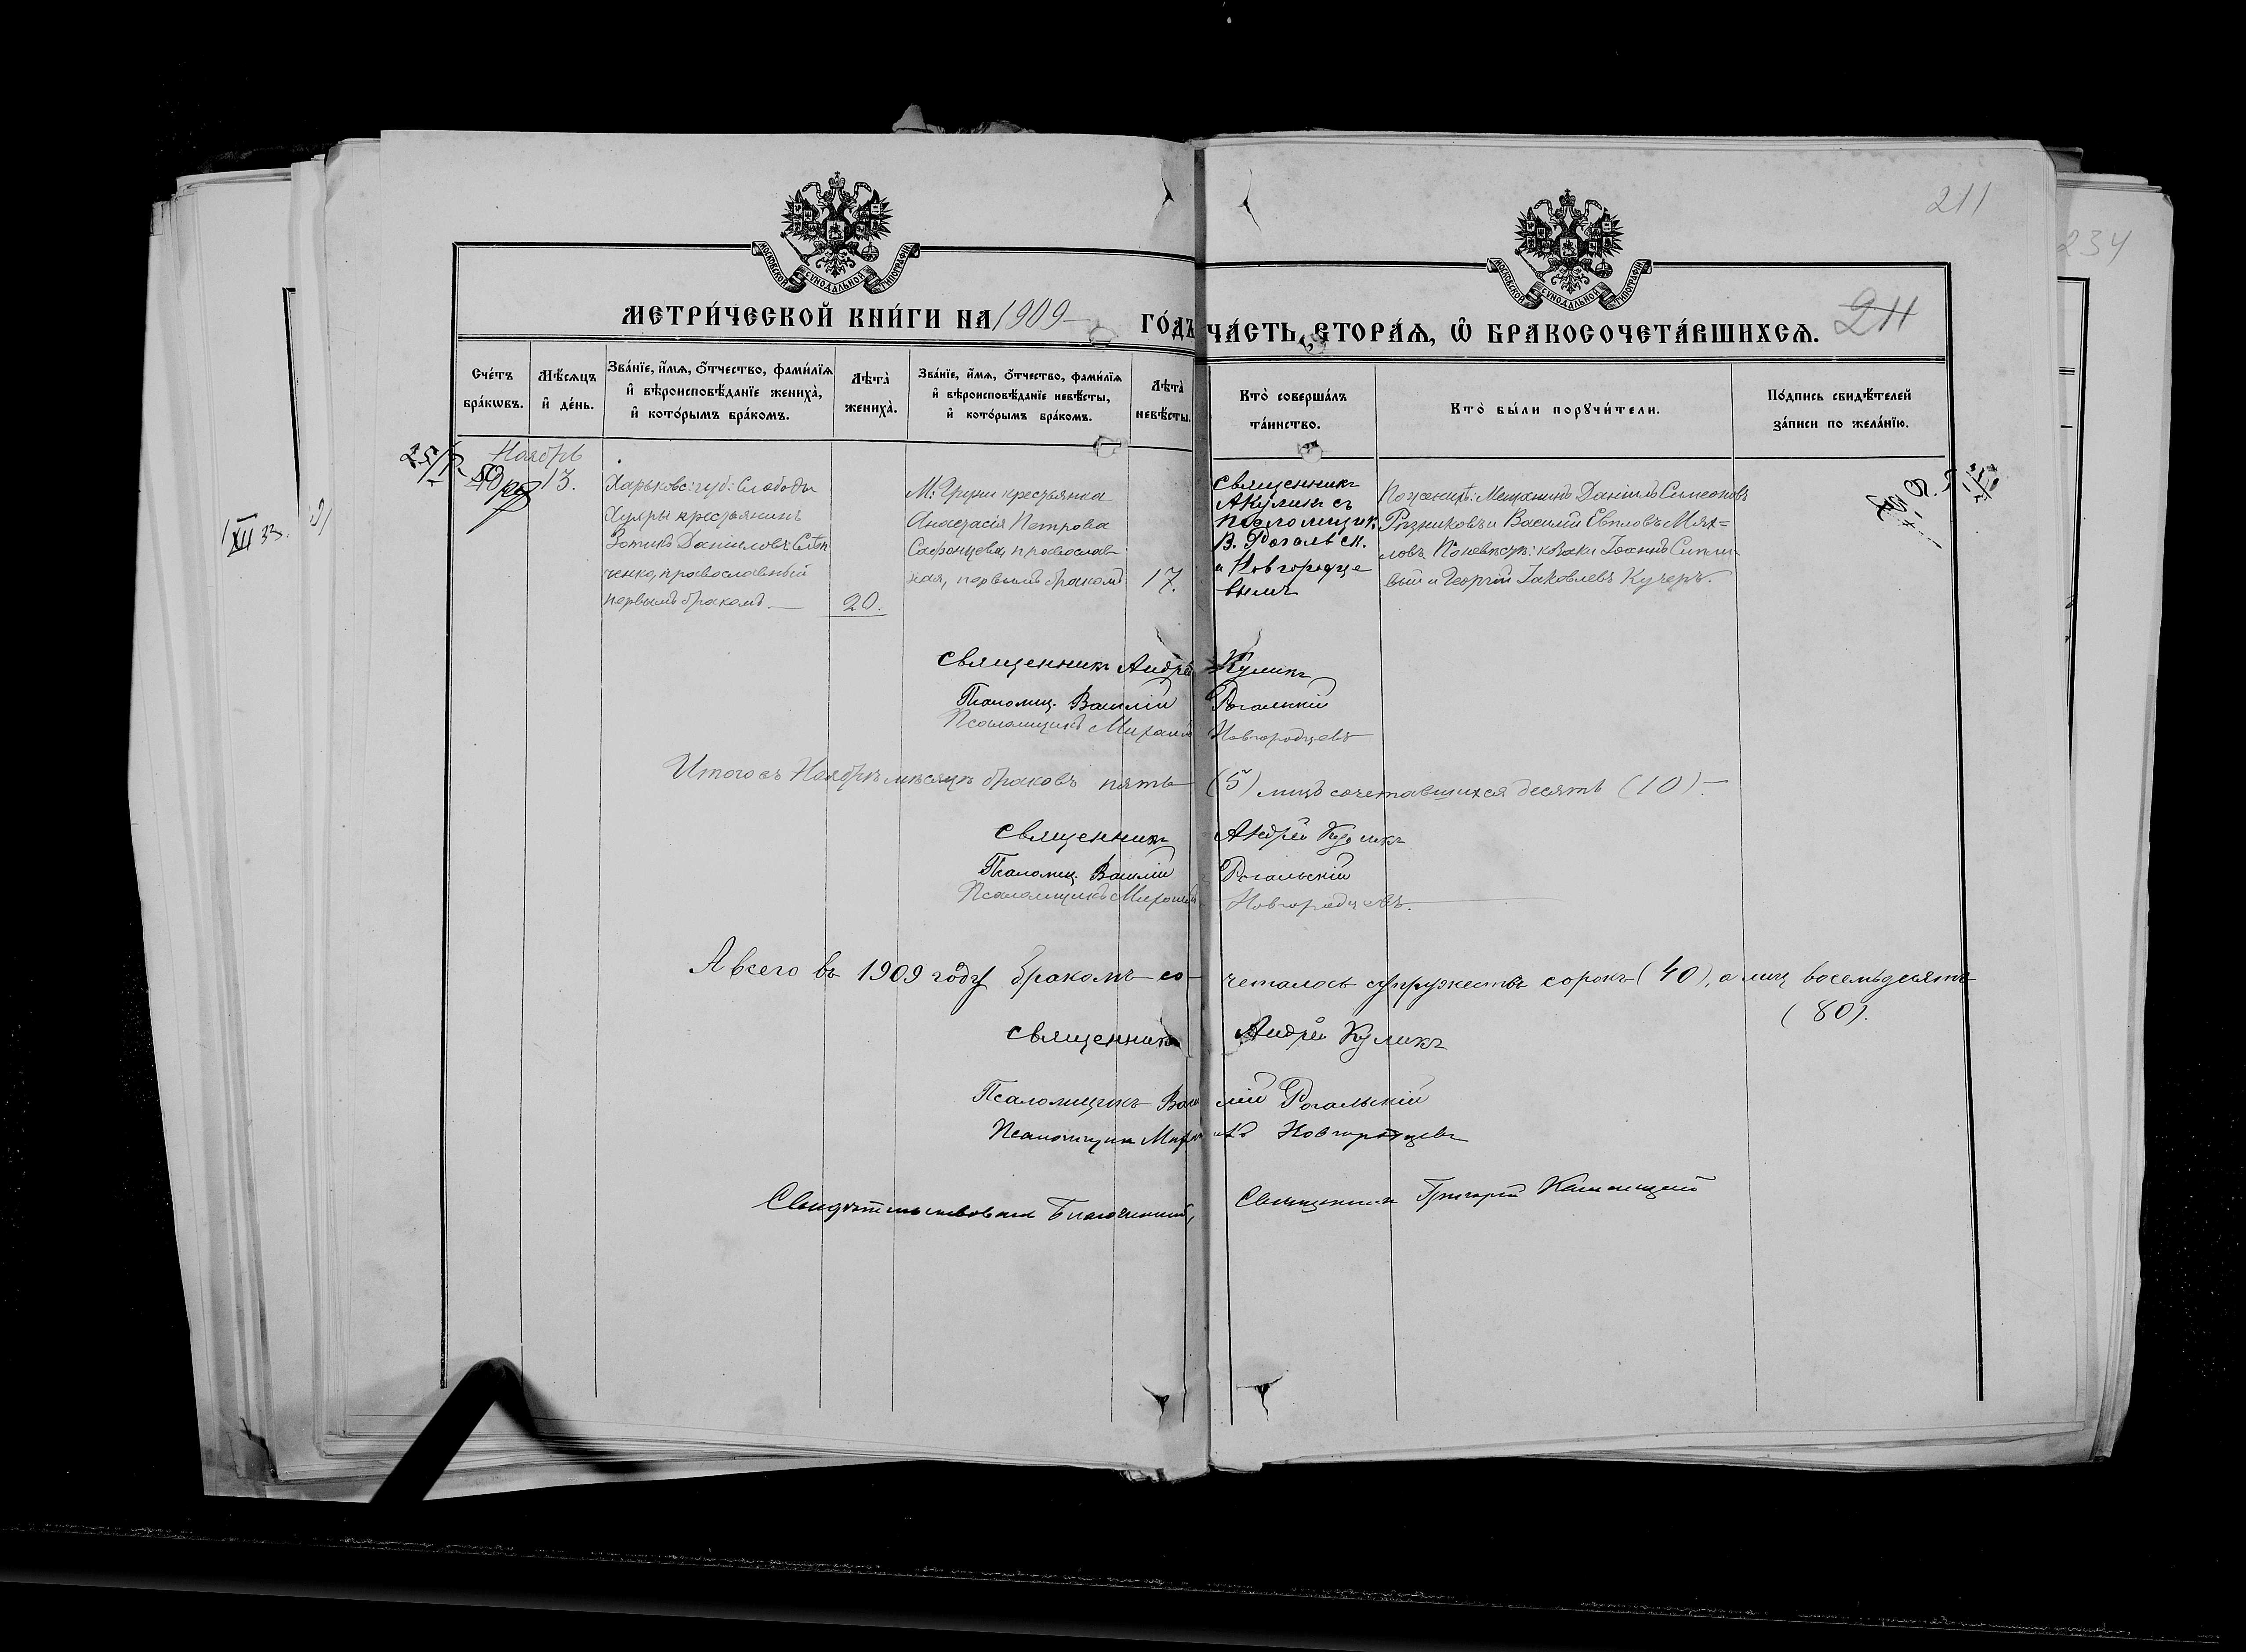 211
234
МОСКОВСКОЙ СѴНОДАЛЬНОЙ ТИПОГРАФІИ
МОСКОВСКОЙ СѴНОДАЛЬНОЙ ТИПОГРАФІИ
МЕТРИ́ЧЕСКОЙ КНИ́ГИ НА 1909 ГО́ДЪ ЧА́СТЬ ВТОРА́Ѧ, Ѡ҆ БРАКОСОЧЕТА́ВШИХСѦ.
211
Сче́тъ бра́кѡвъ.
Мѣ́сѧцъ и҆ де́нь.
Зва́нїе, и҆́мѧ, ѻ҆́тчество, фами́лїѧ и҆ вѣроисповѣ́данїе жениха̀, и҆ кото́рымъ бра́комъ.
Лѣта̀ жениха̀.
Зва́нїе, и҆́мѧ, ѻ҆́тчество, фами́лїѧ и҆ вѣроисповѣ́данїе невѣ́сты, и҆ кото́рымъ бра́комъ.
Лѣта̀ невѣ́сты.
Кто̀ соверша́лъ та́инство.
Кто̀ бы́ли порꙋчи́тели.
По́дпись свидѣ́телей за́писи по жела́нїю.
Ноябрь
40
13.
Харьковс: губ: Слободы
крестьянинъ
Зотикъ Даніиловъ
ченко, православный
первымъ бракомъ.
20.
М: Груни крестьянка
Анастасія Петрова
Сафонцева, православ-
ная, первымъ бракомъ
17.
Священникъ
А Куликъ съ
псаломщик.
В. Рогальск.
и Новгородце
вымъ
По жениху: Мещанинъ Даніилъ Симеоновъ
Рѣзниковъ и Василій
ловъ. По невѣстѣ: козаки Іоаннъ
вый и Георгій Іаковлевъ Кучеръ.
Священникъ Андрей Куликъ
Псаломщ. Василій Рогальскій
Псаломщикъ Михаилъ Новгородцевъ
Итого въ Ноябрѣ мѣсяцѣ браковъ пять (5) лицъ сочетавшихся десять (10).
Священникъ Андрей Куликъ
Псаломщ. Василій Рогальскій
Псаломщикъ Михаилъ Новгородцевъ.
А всего въ 1909 году бракомъ со- четалось супружествъ сорокъ (40), а лиц восемьдесятъ
(80).
Священникъ Андрей Куликъ
Псаломщикъ Василій Рогальскій
Псаломщикъ Михаилъ Новгородцевъ
Свидѣтельствовалъ Благочинный, Священникъ Григорій